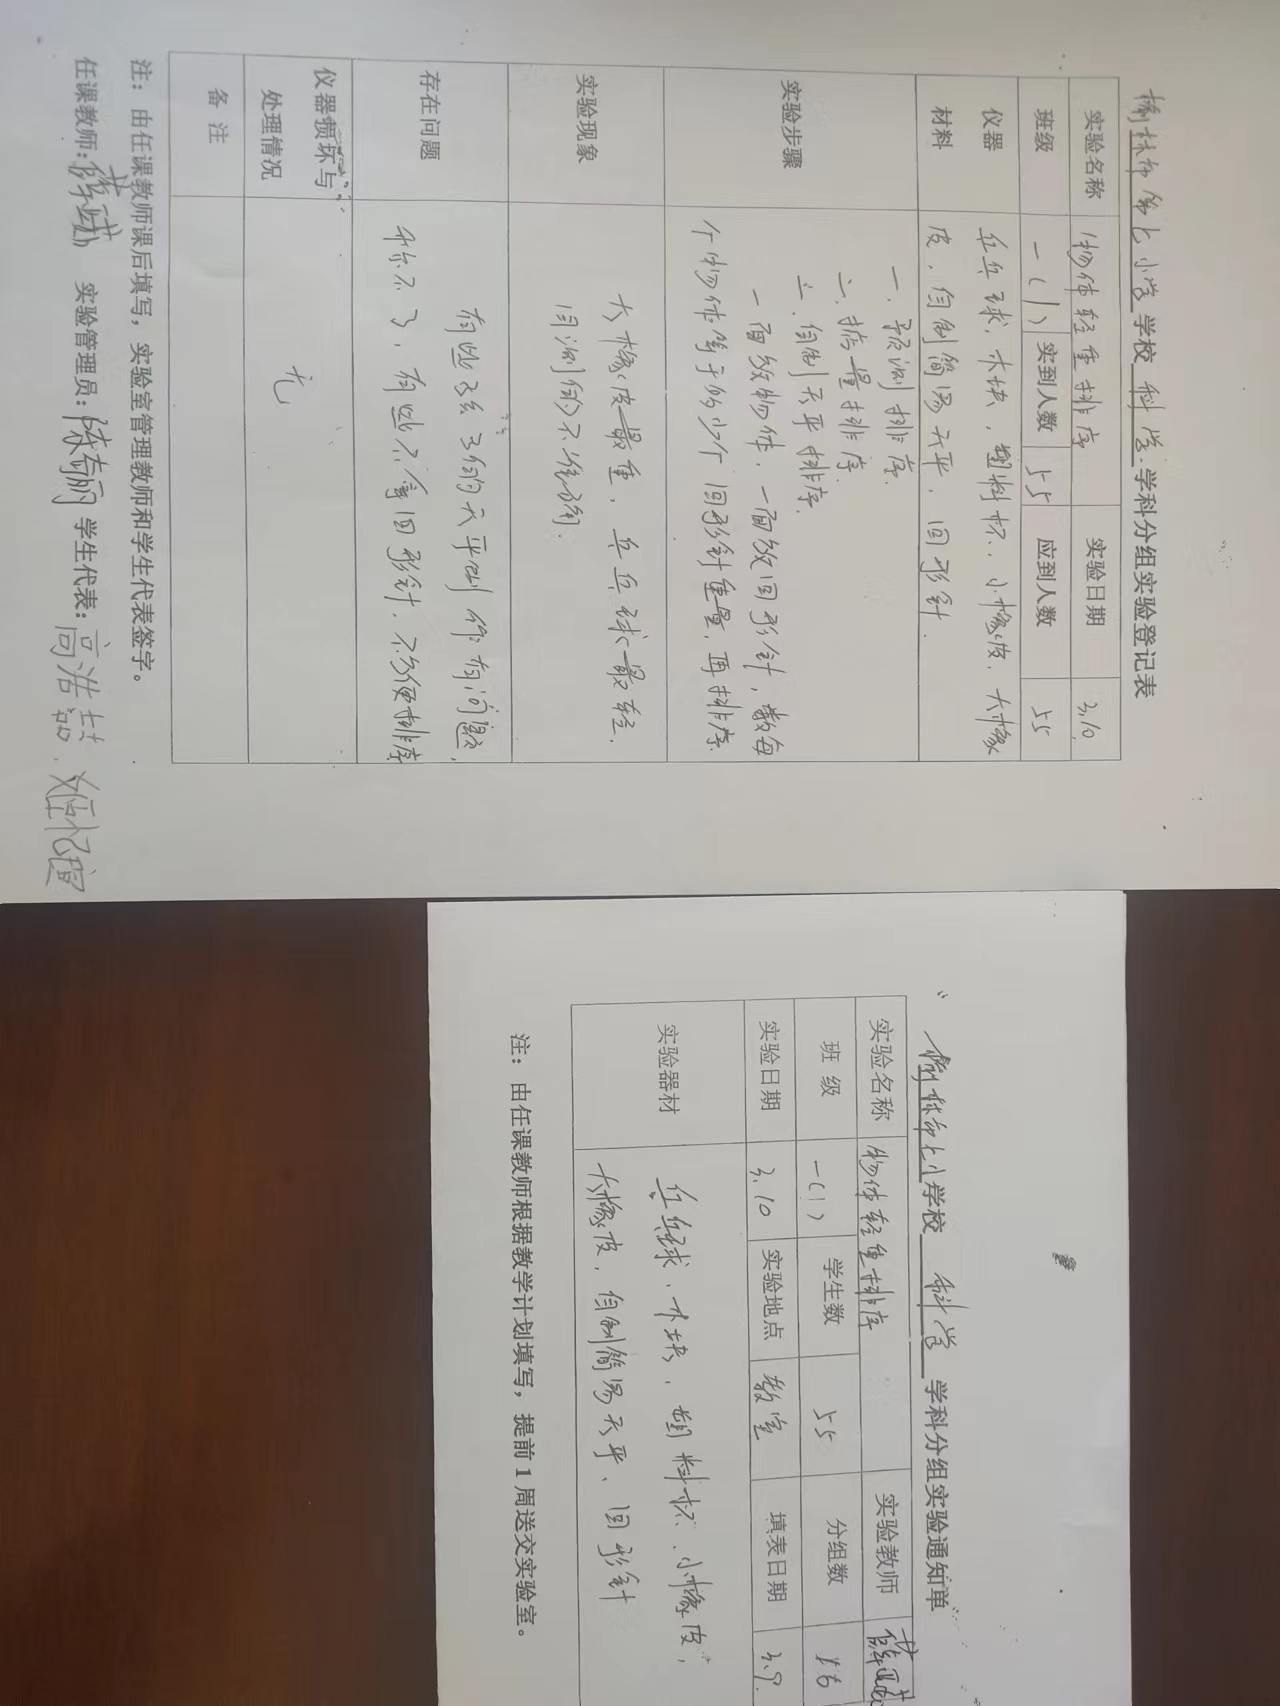 榆林市第七小学学校 科学 学科分组实验登记表
实验名称 物体轻重排序 实验日期 3.10
班级 一(1) 实到人数 55 应到人数 55
仪器 乒乓球、木块、塑料杯、小橡皮、大橡
材料 皮、自制简易天平、回形针
实验步骤
一.预测排序.
二.掂量排序.
三.自制天平排序.
一面放物体,一面放回形针,数每
个物体等于多少个回形针重量,再排序.
实验现象
大橡皮最重,乒乓球最轻,
目测的不准确.
存在问题
有些孩子的天平制作有问题,
称不了,有些不拿回形针,不方便排序
仪器损坏与
处理情况
无
备注
注:由任课教师课后填写,实验室管理教师和学生代表签字。
任课教师: 实验管理员:陈奇丽 学生代表:高浩喆、
榆林市七小学校 科学 学科分组实验通知单
实验名称 物体轻重排序 实验教师
班级 一(1) 学生数 55 分组数 16
实验日期 3.10 实验地点 教室 填表日期 3.9.
实验器材
乒乓球、木块、塑料杯、小橡皮,
大橡皮,自制简易天平、回形针
注:由任课教师根据教学计划填写,提前1周送交实验室。